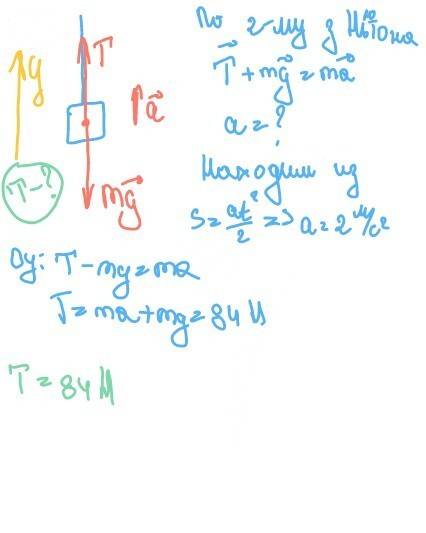 y
T
a⃗
T-?
mg⃗
По 2-му з Ньютона
T⃗ + mg⃗ = ma⃗
a = ?
Находим из
S = at²/2 => a = 2 м/с²
Oy: T - mg = ma
T = ma + mg = 84 Н
T = 84 Н